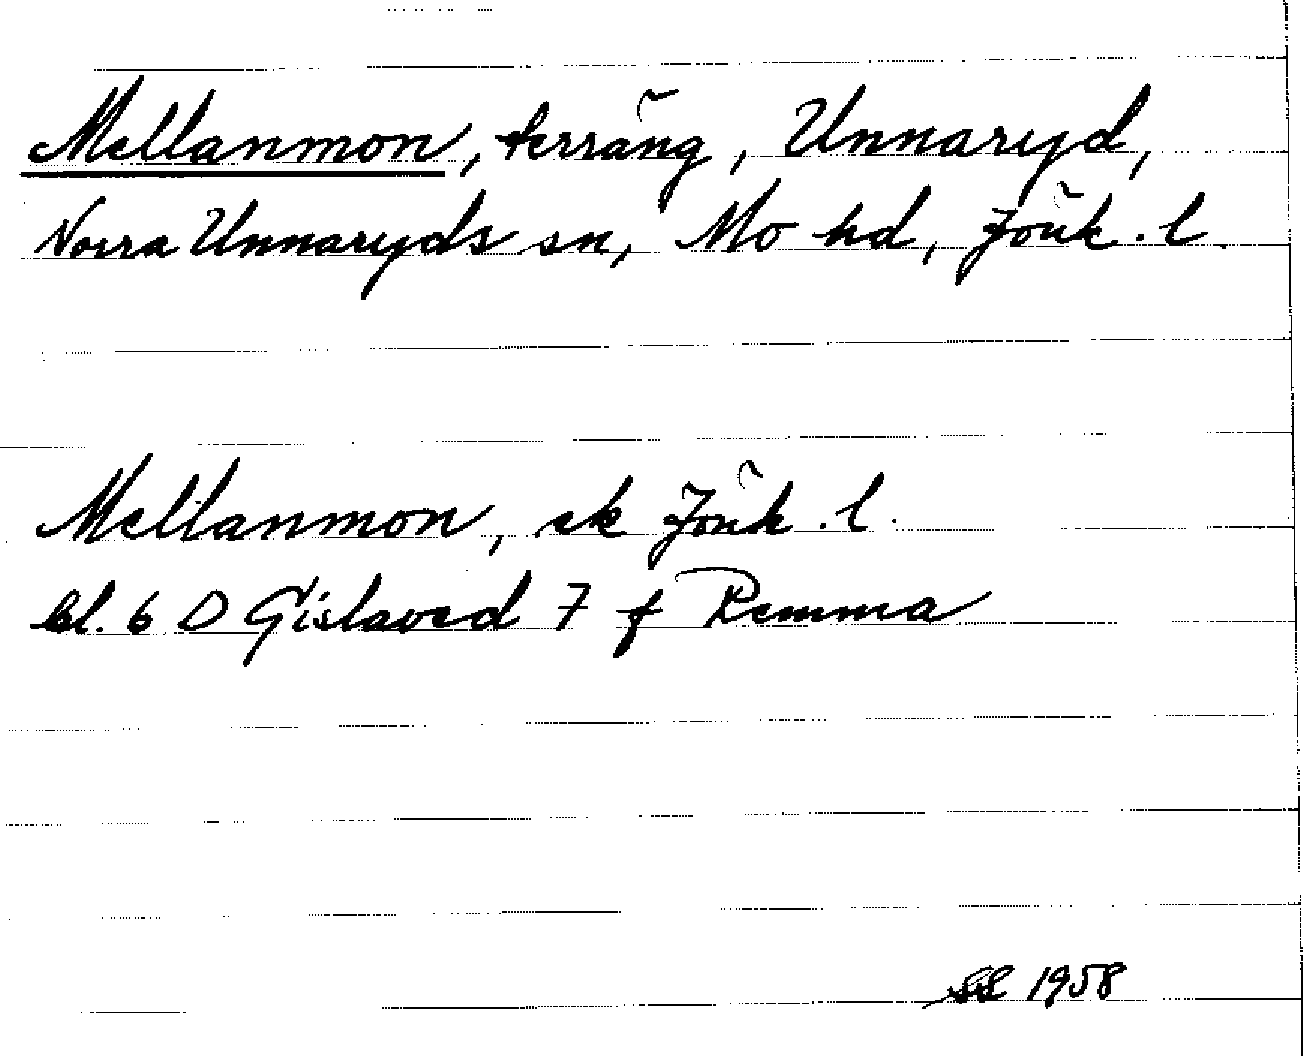 Mellanmon, terräng, Unnaryd,
Norra Unnaryds sn, Mo hd, Jönk. l.
Mellanmon, ek Jönk. l.
bl. 6 D Gislaved 7 f Remma
SS 1958